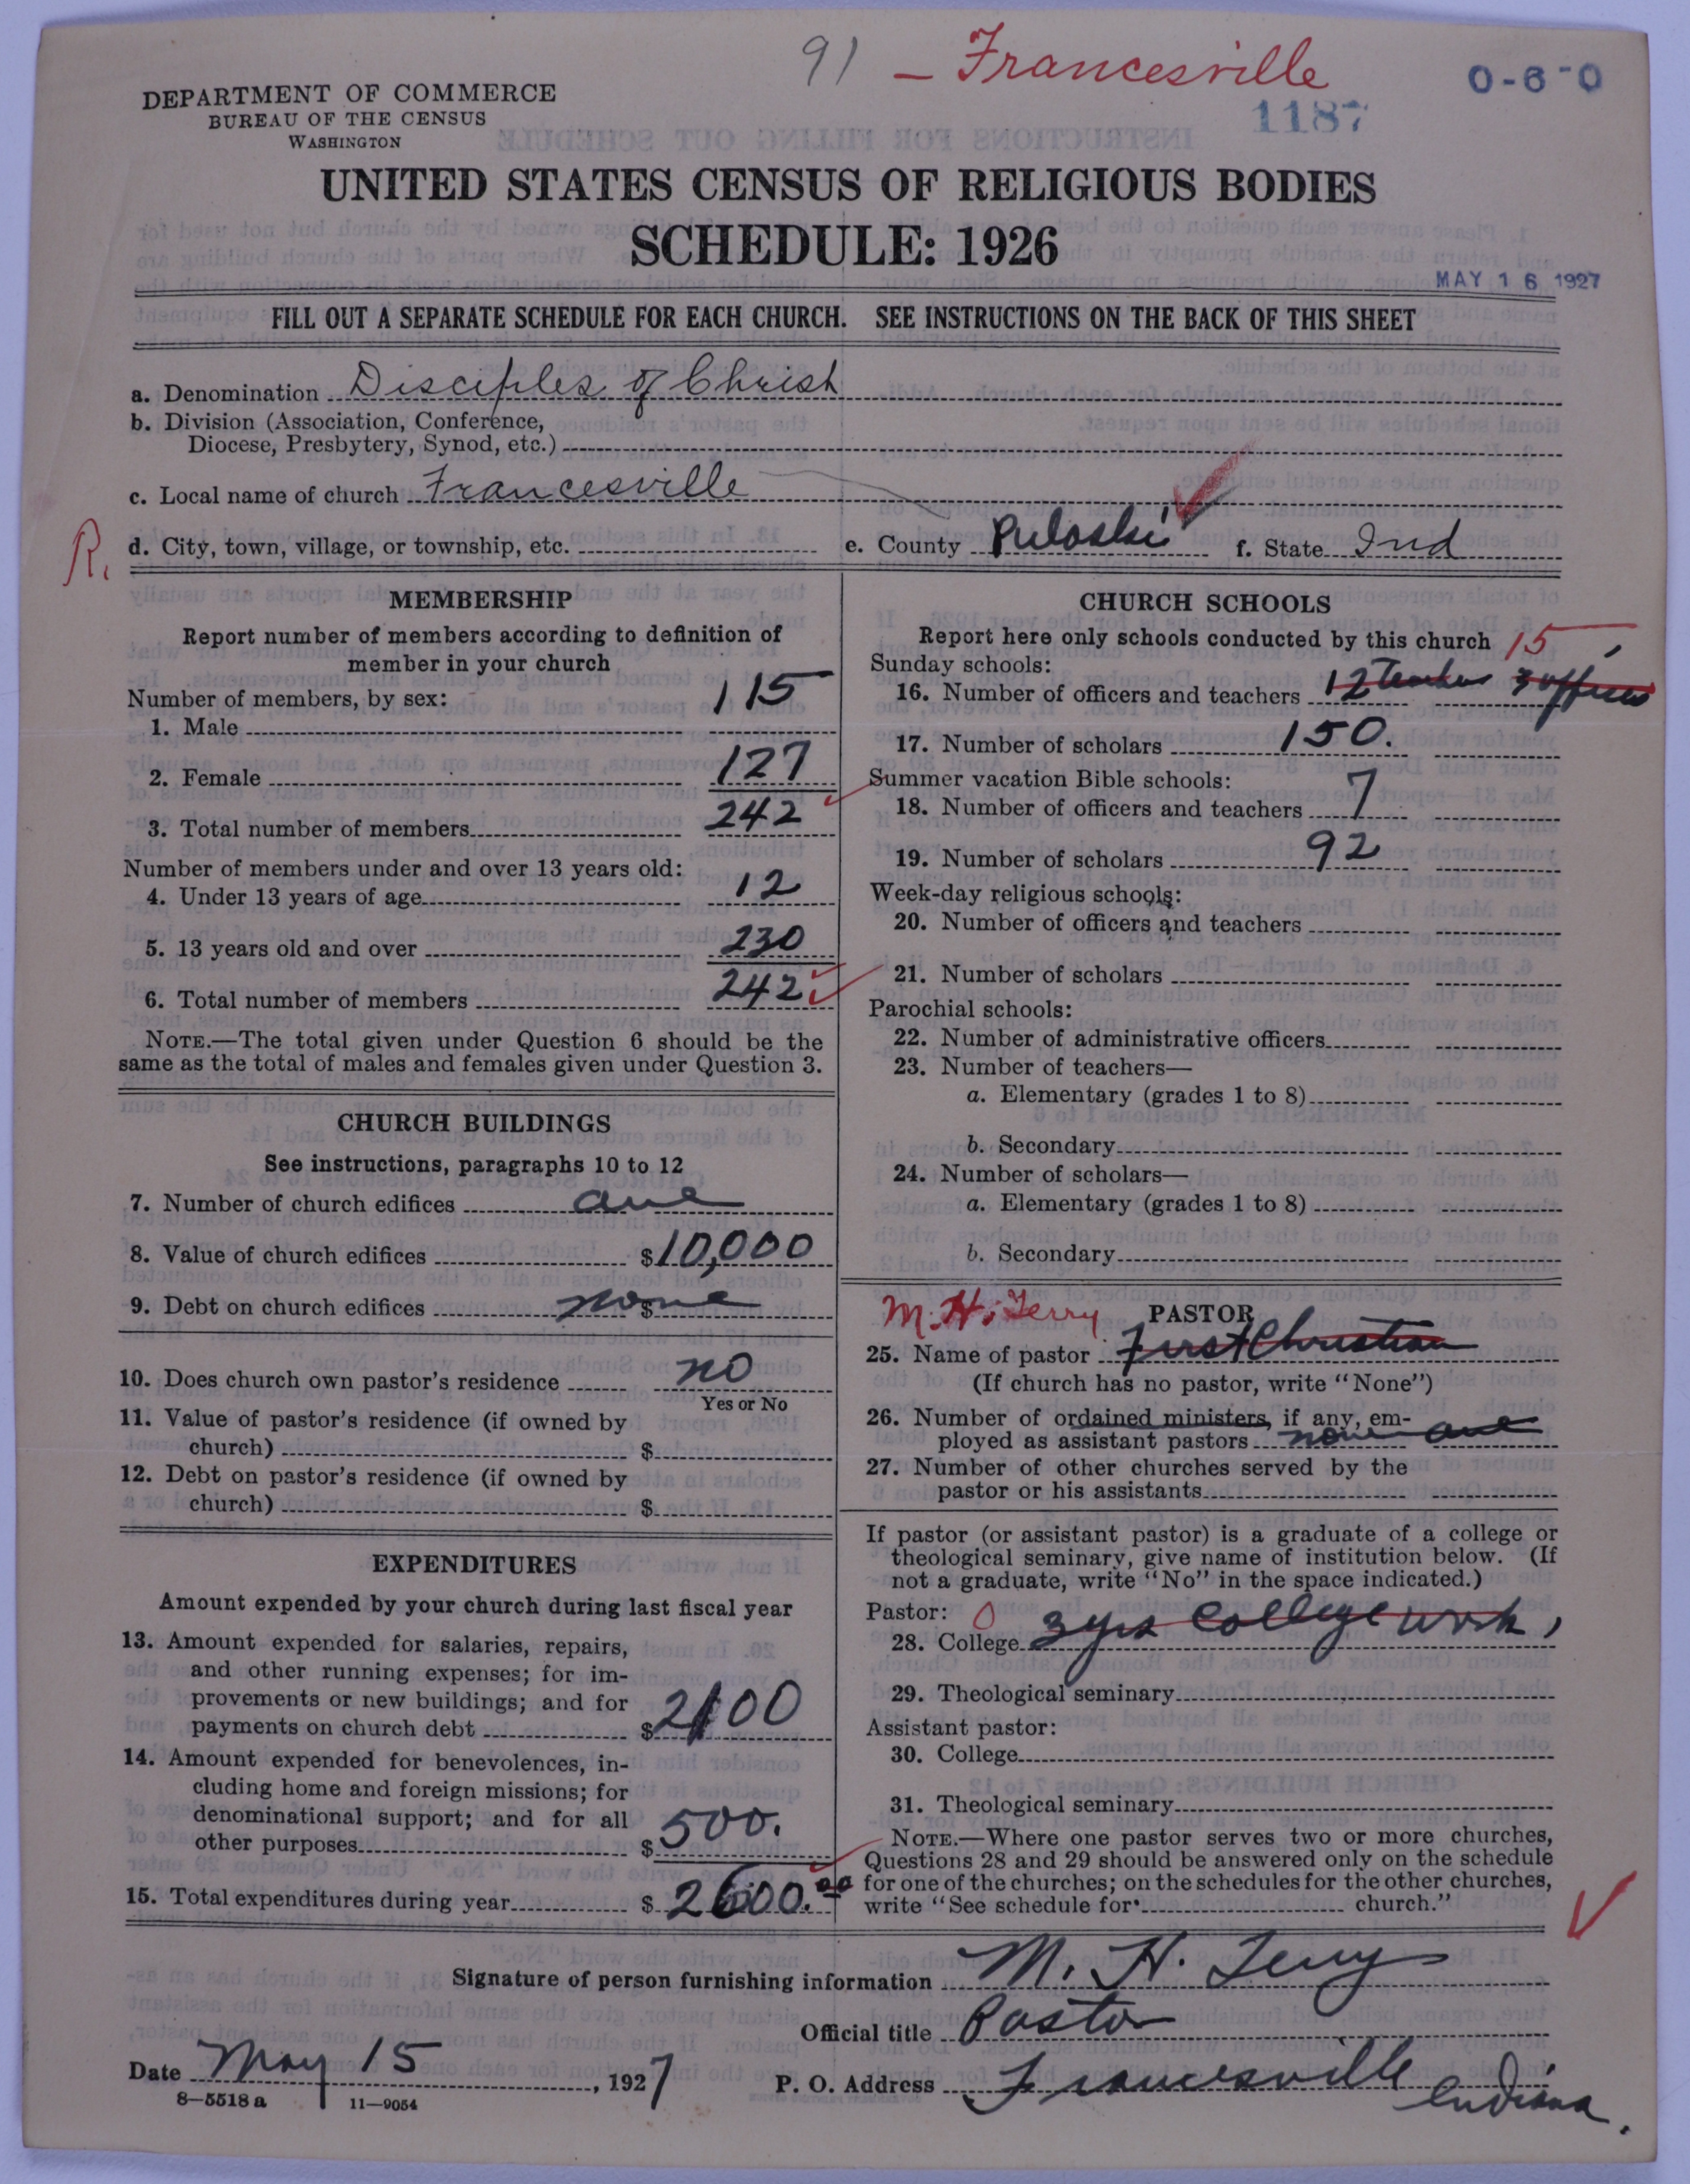 91 – Francesville
0-6-0
DEPARTMENT OF COMMERCE
BUREAU OF THE CENSUS
WASHINGTON
1187
UNITED STATES CENSUS OF RELIGIOUS BODIES
SCHEDULE: 1926
MAY 16 1927
FILL OUT A SEPARATE SCHEDULE FOR EACH CHURCH. SEE INSTRUCTIONS ON THE BACK OF THIS SHEET
a. Denomination Disciples of Christ
b. Division (Association, Conference,
Diocese, Presbytery, Synod, etc.)
c. Local name of church Francesville
R. d. City, town, village, or township, etc. e. County Puloski f. State Ind
MEMBERSHIP
Report number of members according to definition of
member in your church
Number of members, by sex:
1. Male 115
2. Female 127
3. Total number of members 242
Number of members under and over 13 years old:
4. Under 13 years of age 12
5. 13 years old and over 230
6. Total number of members 242
NOTE.—The total given under Question 6 should be the
same as the total of males and females given under Question 3.
CHURCH BUILDINGS
See instructions, paragraphs 10 to 12
7. Number of church edifices one
8. Value of church edifices $10,000
9. Debt on church edifices none $
10. Does church own pastor's residence no
Yes or No
11. Value of pastor's residence (if owned by
church) $
12. Debt on pastor's residence (if owned by
church) $
EXPENDITURES
Amount expended by your church during last fiscal year
13. Amount expended for salaries, repairs,
and other running expenses; for im-
provements or new buildings; and for
payments on church debt $2100
14. Amount expended for benevolences, in-
cluding home and foreign missions; for
denominational support; and for all
other purposes $500.
15. Total expenditures during year $2600.00
CHURCH SCHOOLS
Report here only schools conducted by this church 15
Sunday schools:
16. Number of officers and teachers 12 Teachers 3 officers
17. Number of scholars 150.
Summer vacation Bible schools:
18. Number of officers and teachers 7
19. Number of scholars 92
Week-day religious schools:
20. Number of officers and teachers
21. Number of scholars
Parochial schools:
22. Number of administrative officers
23. Number of teachers—
a. Elementary (grades 1 to 8)
b. Secondary
24. Number of scholars—
a. Elementary (grades 1 to 8)
b. Secondary
M. H. Terry PASTOR
25. Name of pastor First Christian
(If church has no pastor, write "None")
26. Number of ordained ministers, if any, em-
ployed as assistant pastors none one
27. Number of other churches served by the
pastor or his assistants
If pastor (or assistant pastor) is a graduate of a college or
theological seminary, give name of institution below. (If
not a graduate, write "No" in the space indicated.)
Pastor: 0
28. College 3 yrs College work,
29. Theological seminary
Assistant pastor:
30. College
31. Theological seminary
NOTE.—Where one pastor serves two or more churches,
Questions 28 and 29 should be answered only on the schedule
for one of the churches; on the schedules for the other churches,
write "See schedule for church."
Signature of person furnishing information M. H. Terry
Official title Pastor
Date May 15, 1927 P. O. Address Francesville Indiana.
8—5518 a 11—9054